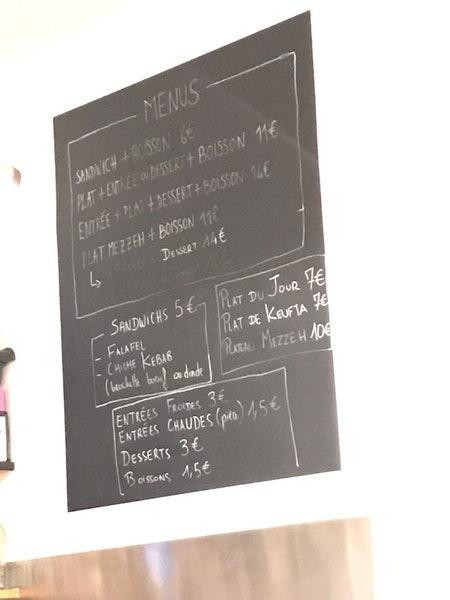 MENUS
SANDWICH + BOISSON 6€
PLAT + ENTRÉE OU DESSERT + BOISSON 11€
ENTRÉE + PLAT + DESSERT + BOISSON 14€
PLAT MEZZEH + BOISSON 11€
DESSERT 14€
SANDWICHS 5€
- FALAFEL
- CHICHE KEBAB
(brochette boeuf ou dinde
PLAT DU JOUR 7€
PLAT DE KEUFTA 7€
PLATEAU MEZZEH 10€
ENTRÉES FROIDES 3€
ENTRÉES CHAUDES (pièce) 1,5€
DESSERTS 3€
BOISSONS 1,5€